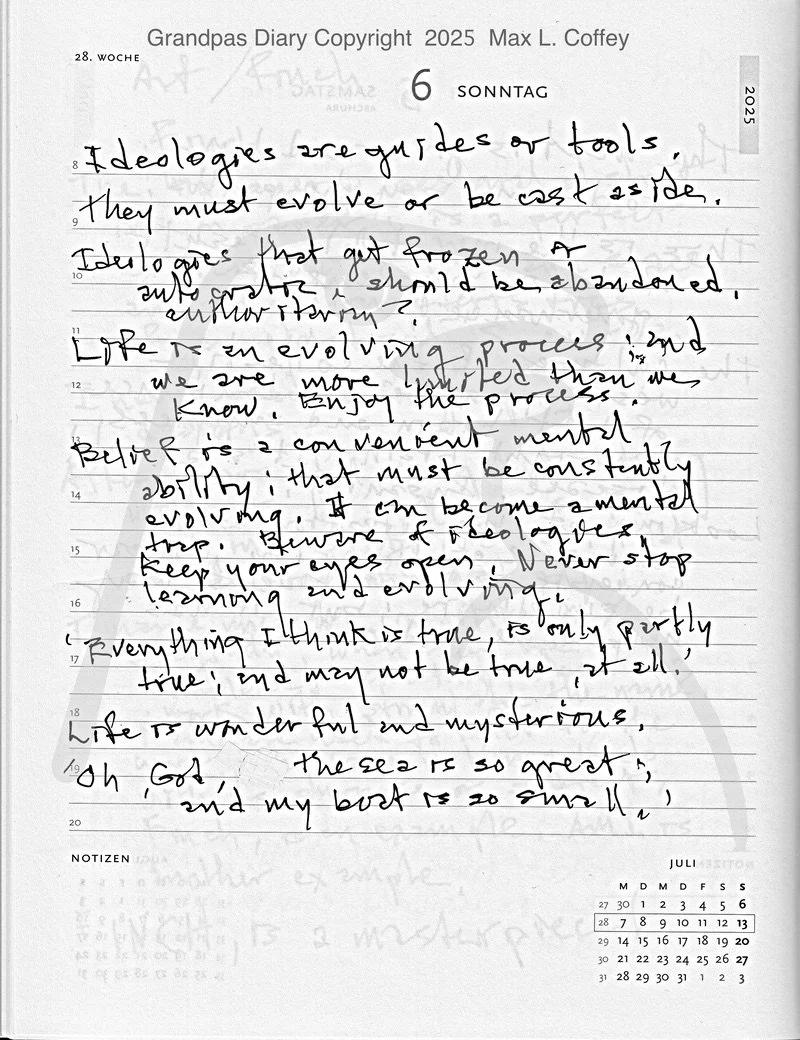 Grandpas Diary Copyright 2025 Max L. Coffey
28. WOCHE
6 SONNTAG
2025
8 Ideologies are guides or tools.
They must evolve or be cast aside.
9
Ideologies that get frozen &
10 autocratic, should be abandoned.
authoritarian?
11
Life is an evolving process; and
12 we are more limited than we
know. Enjoy the process.
13
Belief is a convenient mental
ability; that must be constantly
14
evolving. It can become a mental
trap. Beware of ideologies,
15
Keep your eyes open. Never stop
learning and evolving.
16
'Everything I think is true, is only partly
17
true; and may not be true, at all.'
18
Life is wonderful and mysterious.
19 'Oh, God, the sea is so great;
and my boat is so small.'
20
NOTIZEN
JULI
M D M D F S S
27 30 1 2 3 4 5 6
28 7 8 9 10 11 12 13
29 14 15 16 17 18 19 20
30 21 22 23 24 25 26 27
31 28 29 30 31 1 2 3